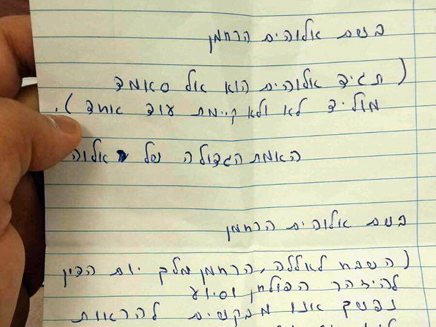 בשם אלוהים הרחמן
(תגיד אלוהים הוא אל סאמד
מוליד לא ולא קיימת עוד אחד).
האמת הגדולה של אלוה
בשם אלוהים הרחמן
(השבח לאללה, הרחמן מלך יום הדין
להיזהר הפולחן וסיוע
נפשך אנו מבקשים להראות